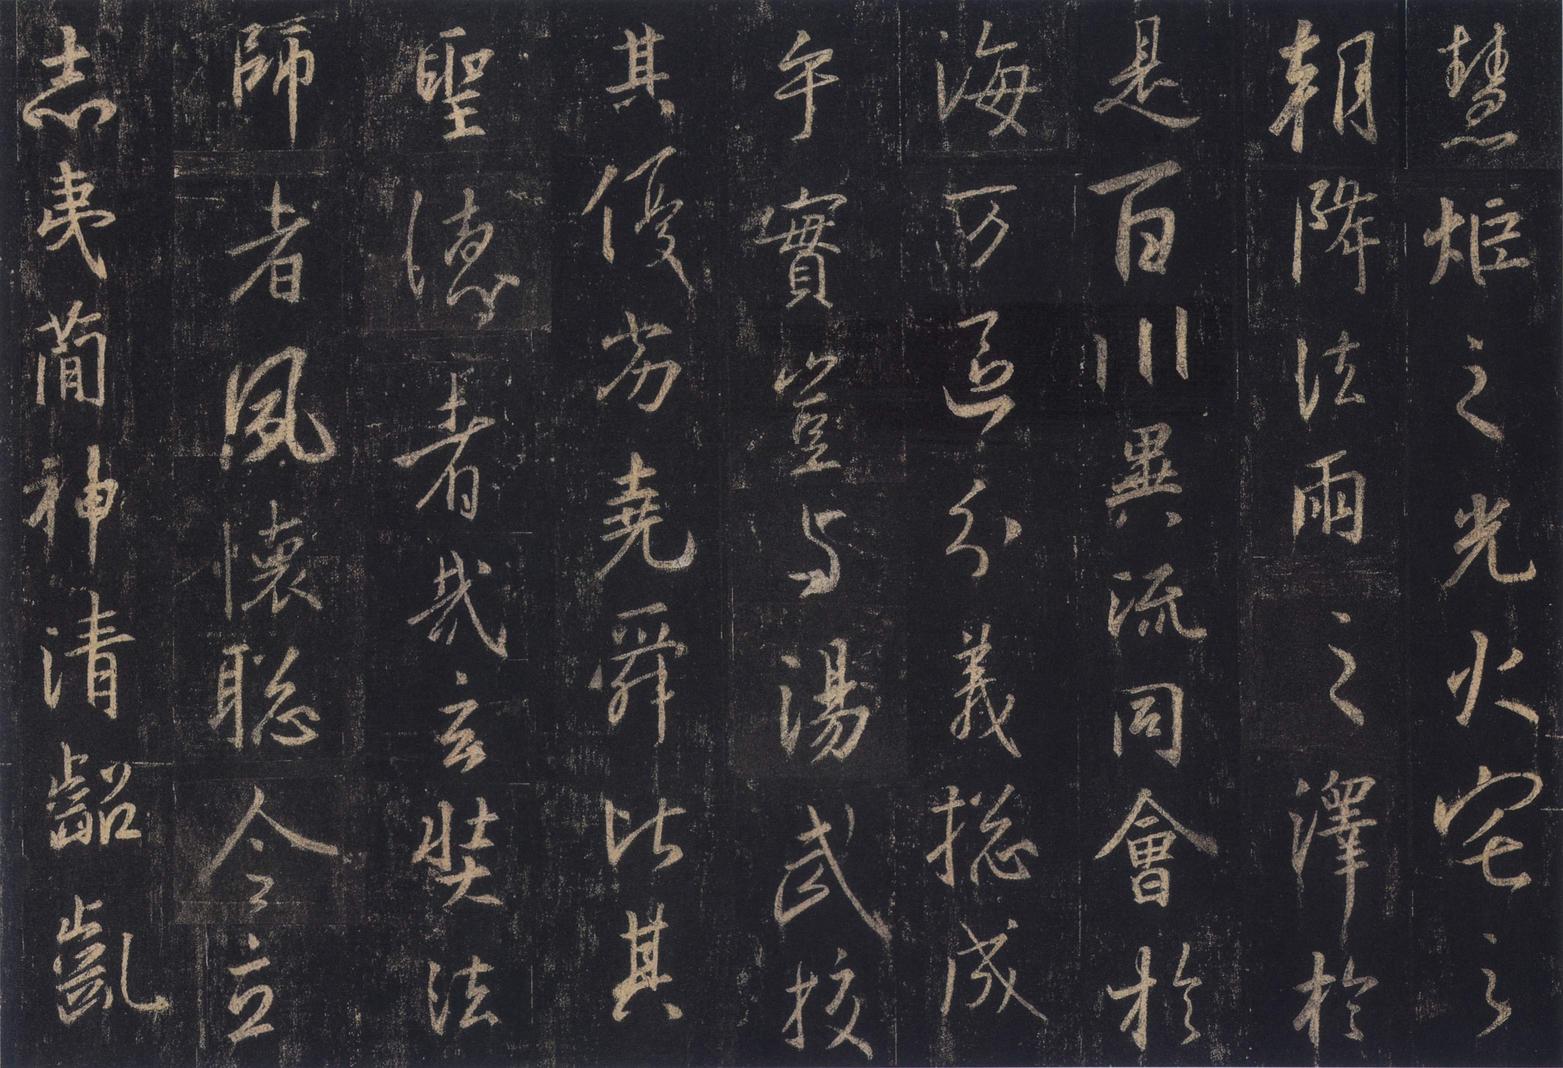 慧炬之光火宅之
朝降法雨之澤於
是百川異流同會於
海万區分義揔成
乎實豈与湯武校
其優劣堯舜比其
聖德者哉玄奘法
師者夙懷聡令立
志夷簡神清齠齓